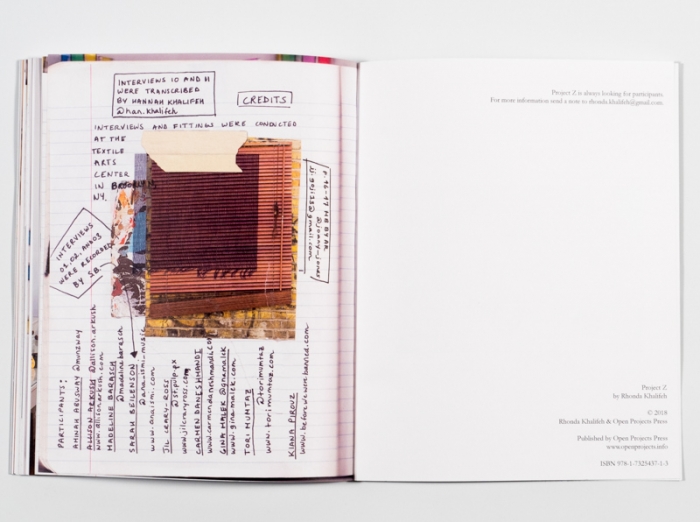 INTERVIEWS 10 AND 11
WERE TRANSCRIBED
BY HANNAH KHALIFEH
@han.khalifeh
CREDITS
INTERVIEWS AND FITTINGS WERE CONDUCTED
AT THE
TEXTILE
ARTS
CENTER
IN
NY.
INTERVIEWS
01, 02, AND 03
WERE RECORDED
BY S.B.
PARTICIPANTS:
AMINAH
ALLISON ARKUSH @allison.arkush
www.allisonarkush.com
MADELINE BARASCH
@madeline.barasch
SARAH BEILENSON
www.anaisml.com
JIL CRARY-ROSS
@st.pulp.px
www.jilcraryross.com
CARMEN DANESHMANDI
www.carmendaneshmandi.com
GINA MALEK @gnamalek
www.gina-malek.com
TORI MUMTAZ
@torimumtaz
www.torimumtaz.com
KIANA PIROUZ
www.beforewewerebanned.com
Project Z is always looking for participants.
For more information send a note to rhonda.khalifeh@gmail.com
Project Z
by Rhonda Khalifeh
© 2018
Rhonda Khalifeh & Open Projects Press
Published by Open Projects Press
www.openprojects.info
ISBN 978-1-7325437-1-3